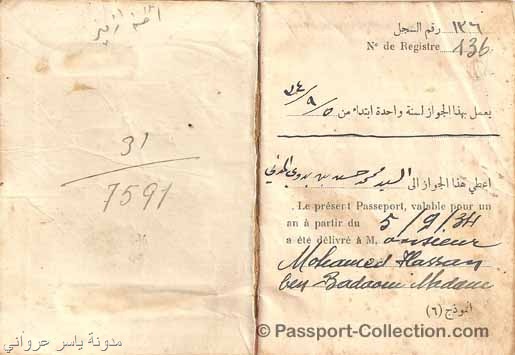 31
7591
مدونة ياسر عرواني
١٣٦ رقم السجل
Nº de Registre 136
يعمل بهذا الجواز لسنة واحدة ابتداء من ٥/٩/٣٤
اعطي هذا الجواز الى السيد محمد حسن بن بدوي المدني
Le présent Passeport, valable pour un
an à partir du 5/9/34
a été délivré à M, onsieur
Mohamed Hassan
ben Badaoui Madani
انموذج (٦)
© Passport-Collection.com